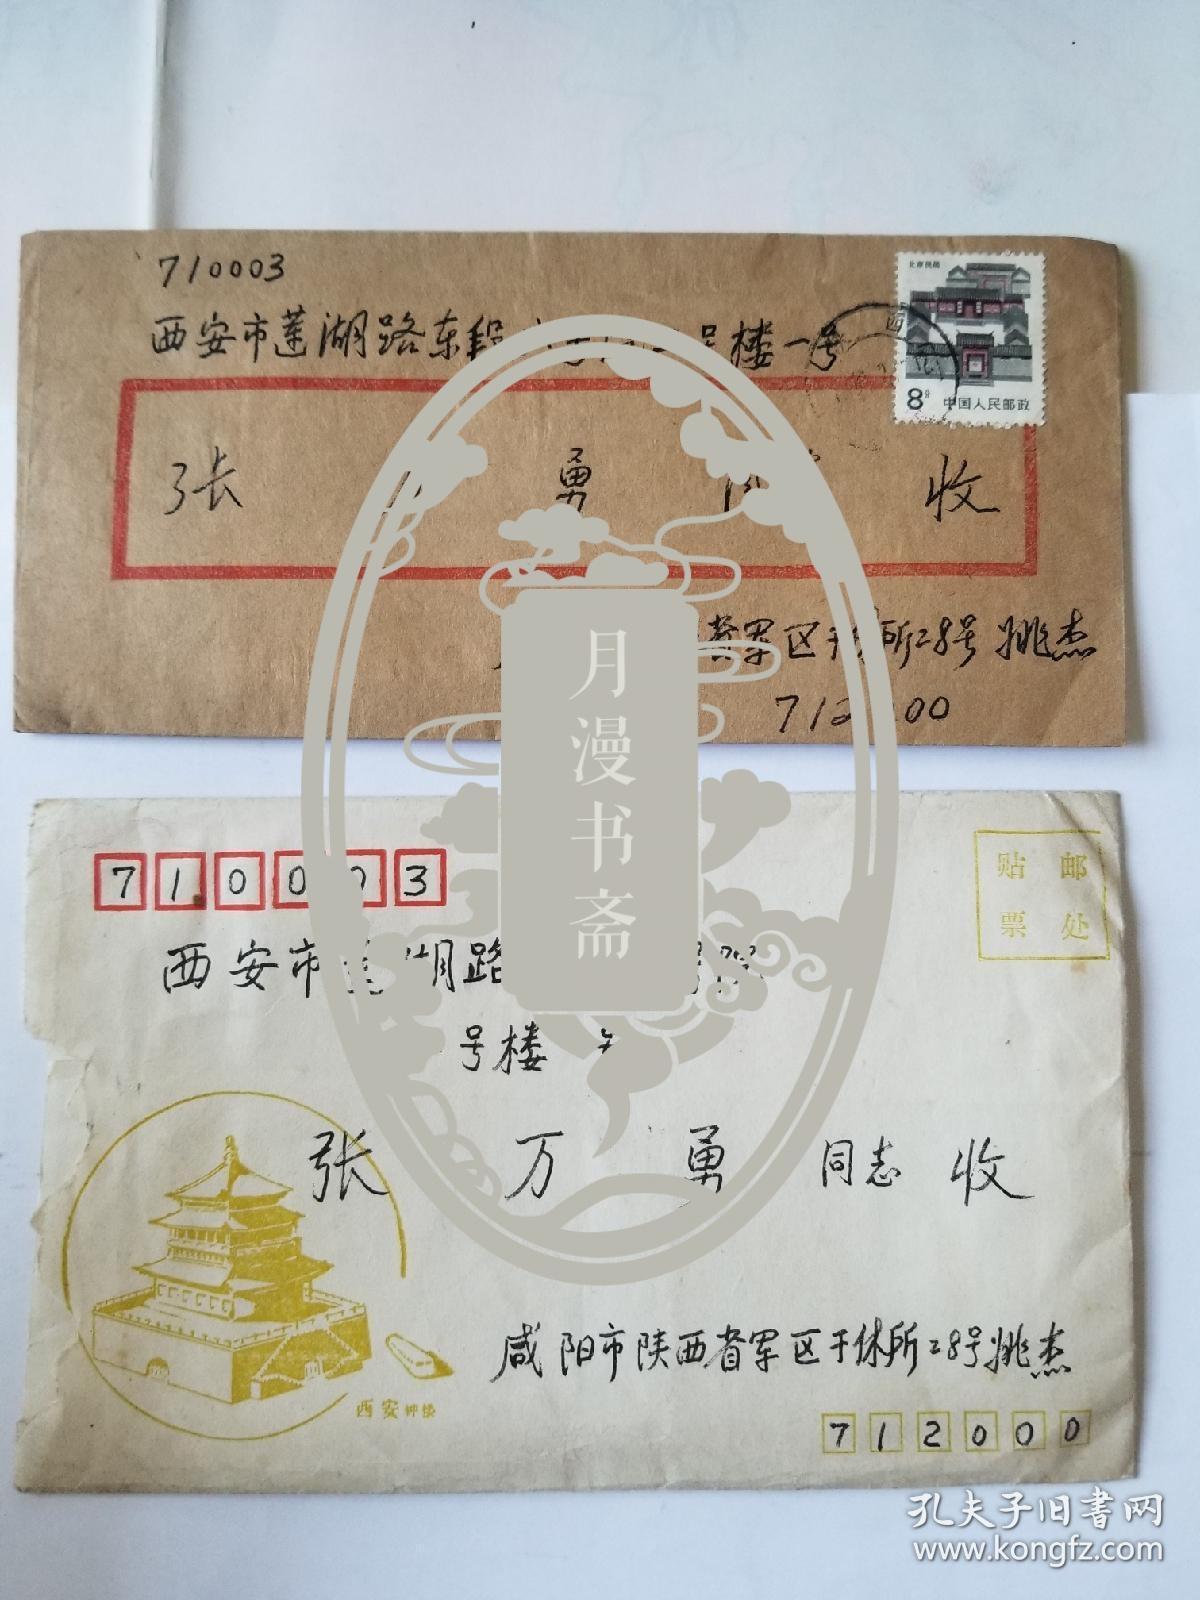 710003
西安市莲湖路东段 号楼一号
北京民居
8分 中国人民邮政
西
张 勇 收
军区干休所28号 姚杰
712 00
月漫书斋
710003
邮票处贴
西安市莲湖路
号楼
张万勇同志收
西安钟楼
咸阳市陕西省军区干休所28号姚杰
712000
孔夫子旧书网
www.kongfz.com